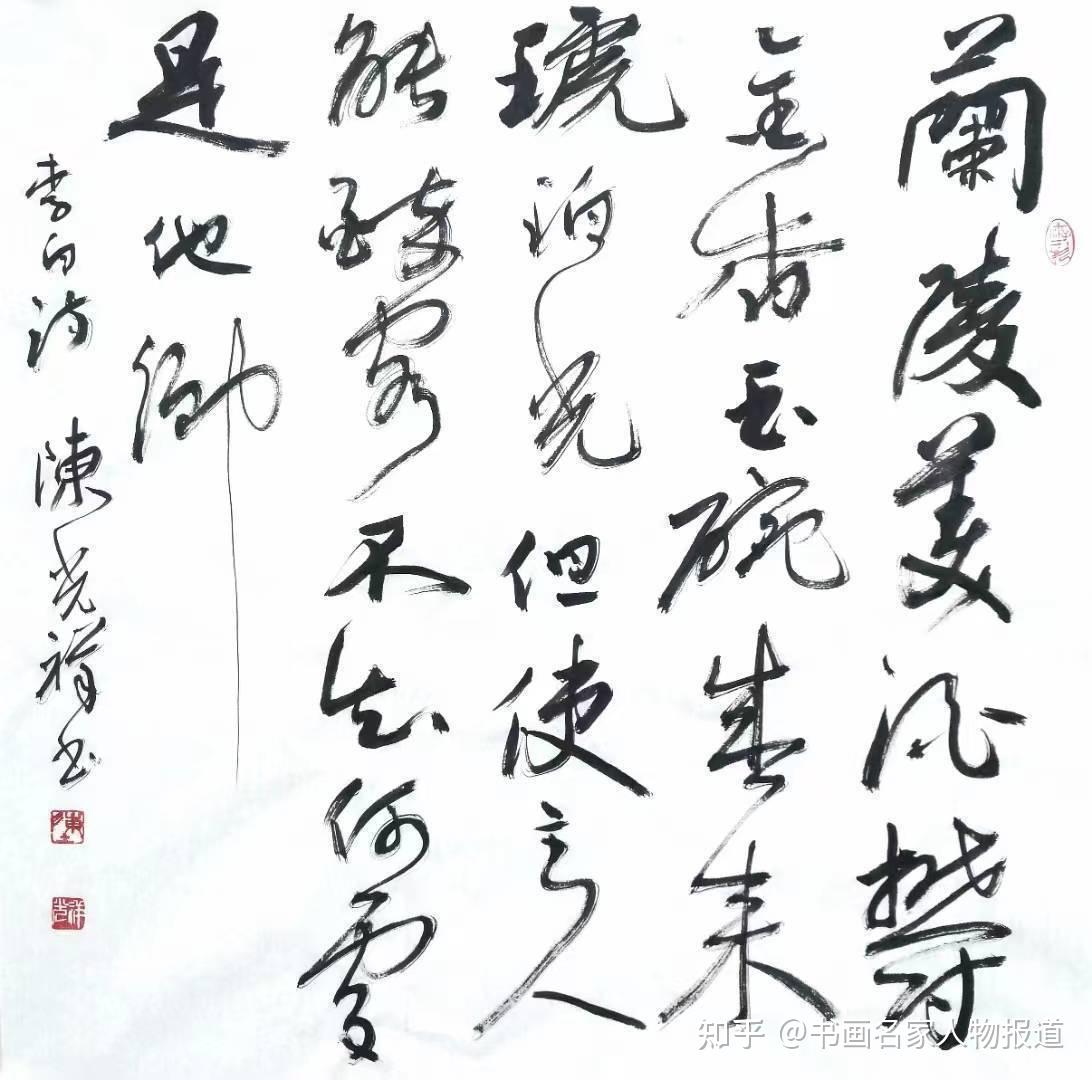 蘭陵美酒鬱
金香玉碗盛来
琥珀光但使主人
能醉客不知何處
是他鄉
李白詩 陳光祥書
知乎 @书画名家人物报道